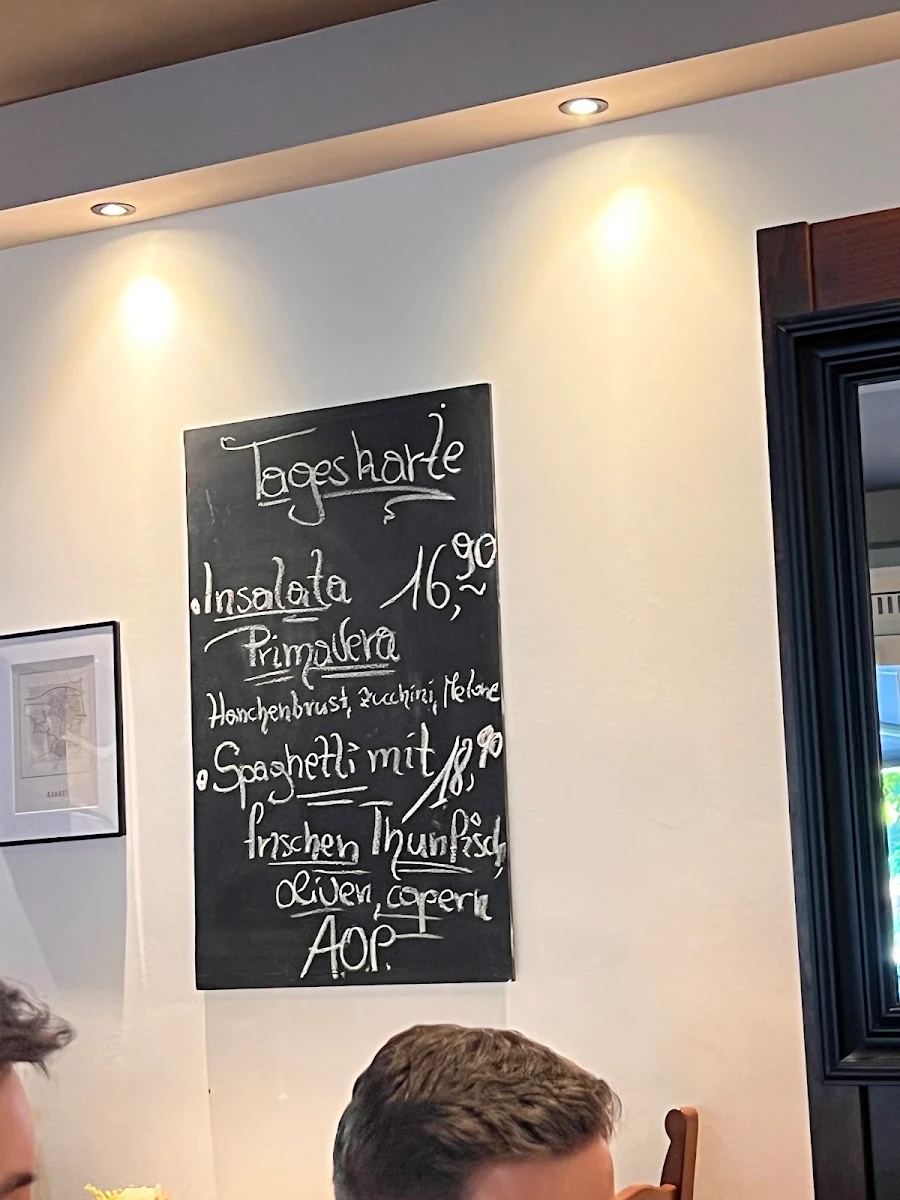 Tageskarte
• Insalata 16,90
Primavera
Hanchenbrust, Zucchini, Melone
• Spaghetti mit 18,90
frischen Thunfisch,
oliven, capern
A.O.P.